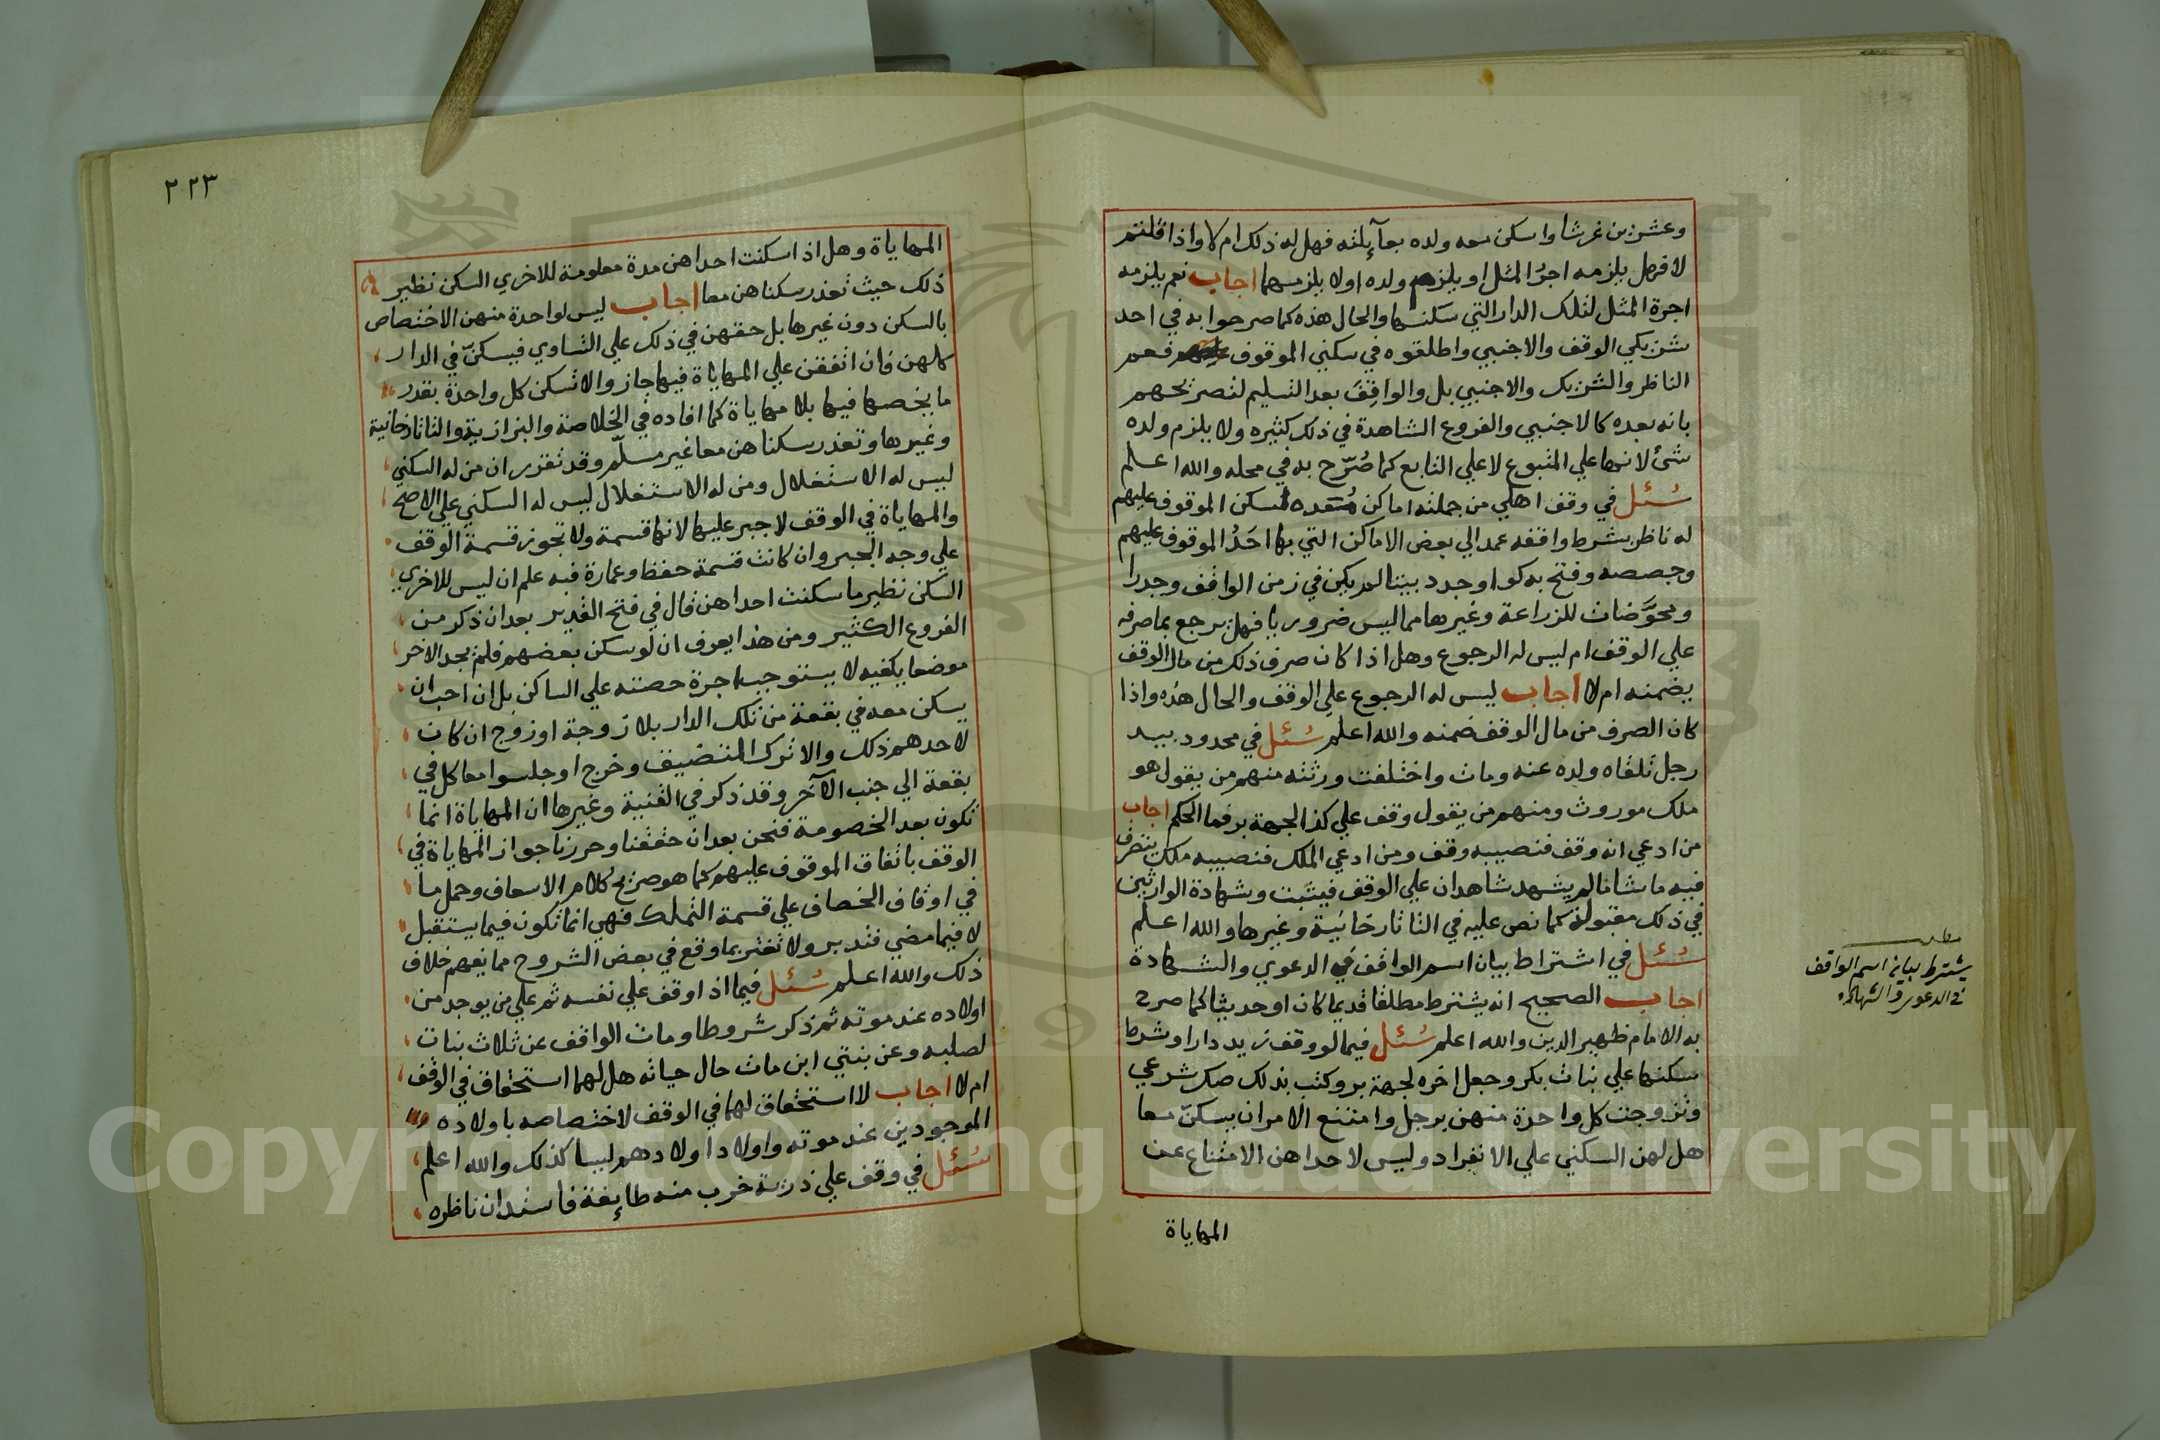 وعشرين غرشا واسكن معه ولده بعآئلته فهل له ذلك ام لا واذا قلتم
لا فهل يلزمه اجرة المثل او يلزم ولده او لا يلزمهما اجاب نعم يلزمه
اجرة المثل لتلك الدار التي سكنها والحال هذه كما صرحوا به في احد
شريكي الوقف والاجنبي واطلقوه في سكني الموقوف فعم
الناظر والشريك والاجنبي بل والواقف بعد التسليم لتصريحهم
بانه بعده كالاجنبي والفروع الشاهدة في ذلك كثيره ولا يلزم ولده
شئ لانها علي المتبوع لا علي التابع كما صُرّح به في محله والله اعلم
سُئل في وقف اهلي من جملته اماكن مُتعده لسكن الموقوف عليهم
له ناظر بشرط واقفه عمد الي بعض الاماكن التي بها احَدُ الموقوف عليهم
وجصصه وفتح به كوا وجدد بيتا لم يكن في زمن الواقف وجدرا
ومحوَّضات للزراعة وغيرها مما ليس ضروريا فهل يرجع بما صرفه
علي الوقف ام ليس له الرجوع وهل اذا كان صرف ذلك من مال الوقف
يضمنه ام لا اجاب ليس له الرجوع علي الوقف والحال هذه واذا
كان الصرف من مال الوقف ضمنه والله اعلم سُئل في محدود بيد
رجل تلقاه ولده عنه ومات واختلفت ورثته منهم من يقول هو
ملك موروث ومنهم من يقول وقف علي كذا لجهة بر فما الحكم اجاب
من ادعي انه وقف فنصيبه وقف ومن ادعي الملك فنصيبه ملك يتصرف
فيه ما شا ما لم يشهد شاهدان علي الوقف فيثبت وشهادة الوارثين
في ذلك مقبولة كما نص عليه في التاتارخانية وغيرها والله اعلم
سُئل في اشتراط بيان اسم الواقف في الدعوي والشهادة
اجاب الصحيح انه يشترط مطلقا قديما كان او حديثا كما صرح
به الامام ظهير الدين والله اعلم سُئل فيما لو وقف زيد دارا وشرط
سكنها علي بنات بكر وجعل اخره لجهة بر وكتب بذلك صك شرعي
وتزوجت كل واحدة منهن برجل وامتنع الامر ان يسكنّ معا
هل لهن السكني علي الانفراد وليس لاحداهن الامتناع عن
المهاياة
مطلب
يشترط بيان اسم الواقف
في الدعوي والشهاده
٢٢٣
المهاياة وهل اذا سكنت احداهن مدة معلومة للاخري السكن نظير
ذلك حيث تعذر سكناهن معا اجاب ليس لواحدة منهن الاختصاص
بالسكن دون غيرها بل حقهن في ذلك علي التساوي فيسكنّ في الدار
كلهن فان اتفقن علي المهاياة فيها جاز والا تسكن كل واحدة بقدر
ما يخصها فيها بلا مهاياة كما افاده في الخلاصة والبزازية والتاتارخانية
وغيرها وتعذر سكناهن معا غير مسلّم وقد تقرر ان من له السكني
ليس له الاستغلال ومن له الاستغلال ليس له السكني علي الاصح
والمهاياة في الوقف لا جبر عليها لانها قسمة ولا تجوز قسمة الوقف
علي وجه الجبر وان كانت قسمة حفظ وعمارة فبه علم ان ليس للاخري
السكن نظير ما سكنت احداهن قال في فتح القدير بعد ان ذكر من
الفروع الكثير ومن هذا يعرف ان لو سكن بعضهم فلم يجد الاخر
موضعا يكفيه لا يستوجب اجرة حصته علي الساكن بل ان احب ان
يسكن معه في بقعة من تلك الدار بلا زوجة او زوج ان كان
لاحدهم ذلك والا ترك المتضيف وخرج او جلسوا معا كل في
بقعة الي جنب الآخر وقد ذكر في القنية وغيرها ان المهاياة انما
تكون بعد الخصومة فنحن بعد ان حققنا وحررنا جواز المهاياة في
الوقف باتفاق الموقوف عليهم كما هو صريح كلام الاسعاف وحمل ما
في اوقاف الخصاف علي قسمة التملك فهي انما تكون فيما يستقبل
لا فيما مضي فتدبر ولا تغتر بما وقع في بعض الشروح مما يفهم خلاف
ذلك والله اعلم سُئل فيما اذا وقف علي نفسه ثم علي من يوجد من
اولاده عند موته ثم ذكر شروطا ومات الواقف عن ثلاث بنات
لصلبه وعن بنتي ابن مات حال حياته هل لهما استحقاق في الوقف
ام لا اجاب لا استحقاق لهما في الوقف لاختصاصه باولاده
الموجودين عند موته واولاد اولادهم ليسا كذلك والله اعلم
سُئل في وقف علي ذرية خرب منه طايفة فاستدان ناظره
Copyright © King Saud University